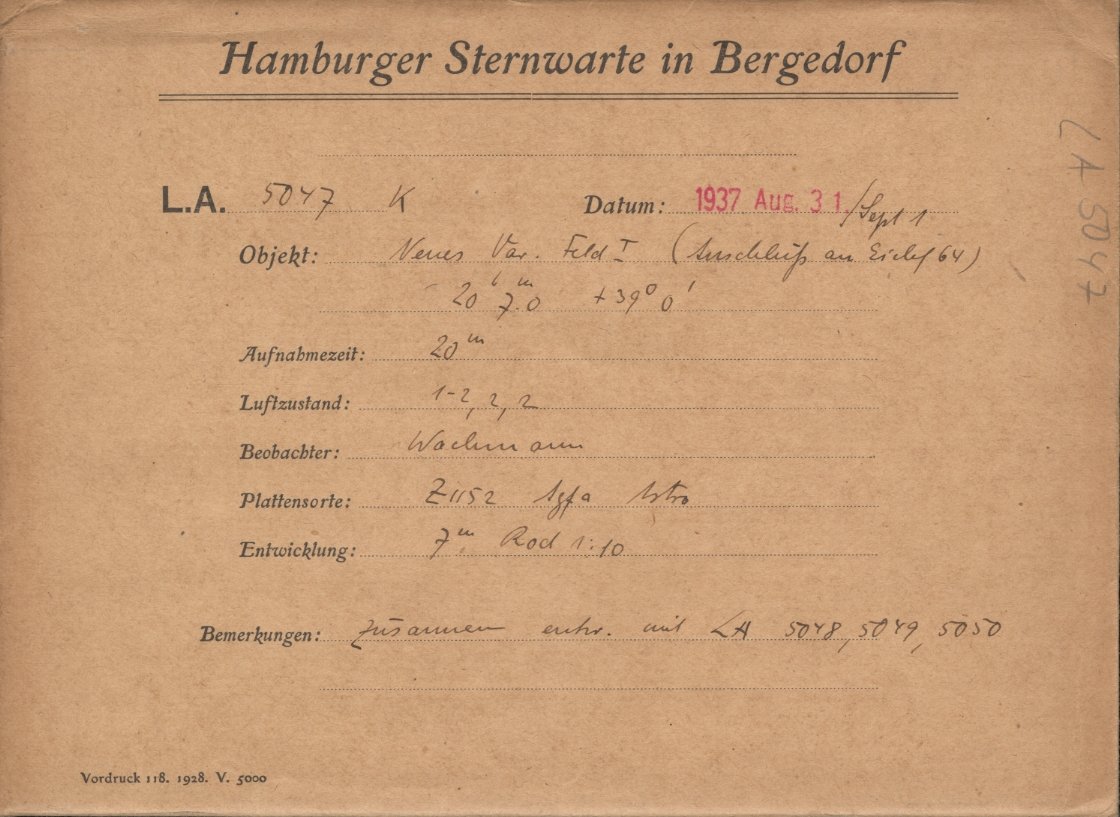 Hamburger Sternwarte in Bergedorf
L.A. 5047 K Datum: 1937 Aug. 31./Sept 1
Objekt: Neues Var. Feld I (Anschluß an Eichf 64)
20h 7m.0 +39° 0'
Aufnahmezeit: 20m
Luftzustand: 1-2, 2, 2
Beobachter: Wachmann
Plattensorte: Z1152 Agfa Astro
Entwicklung: 7m Rod 1:10
Bemerkungen: Zusammen entw. mit LA 5048, 5049, 5050
Vordruck 118. 1928. V. 5000
LA 5047